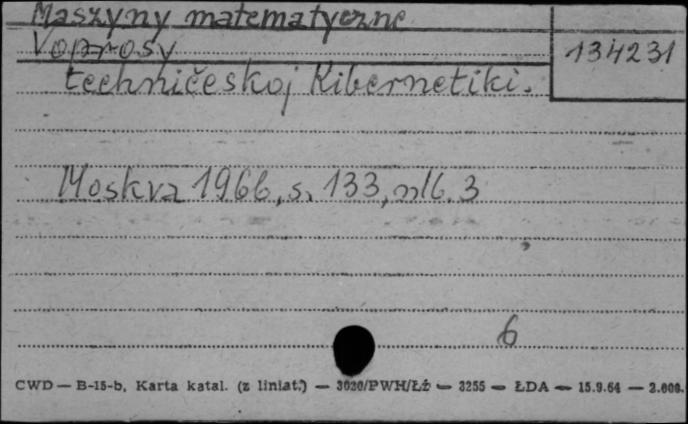 Maszyny matematyczne
Voprosy
134231
techničeskoj Kibernetiki.
Moskva 1966, s. 133, nlb. 3
6
CWD — B-15-b, Karta katal. (z liniat.) — 3020/PWH/Łź — 3255 — ŁDA — 15.9.64 — 2.000.